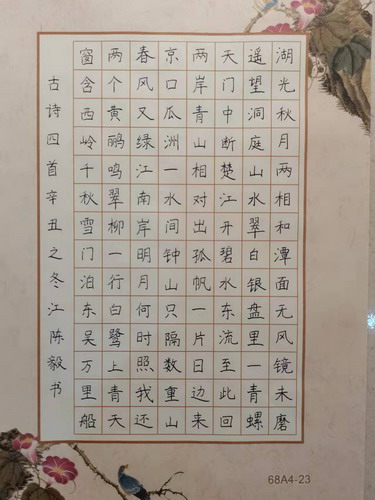 湖光秋月两相和潭面无风镜未磨
遥望洞庭山水翠白银盘里一青螺
天门中断楚江开碧水东流至此回
两岸青山相对出孤帆一片日边来
京口瓜洲一水间钟山只隔数重山
春风又绿江南岸明月何时照我还
两个黄鹂鸣翠柳一行白鹭上青天
窗含西岭千秋雪门泊东吴万里船
古诗四首辛丑之冬江陈毅书
68A4-23